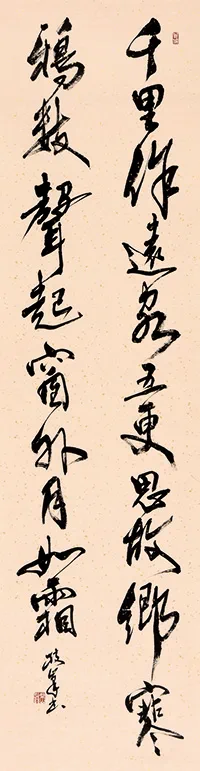 千里作遠客五更思故鄉寒
鴉數聲起窗外月如霜